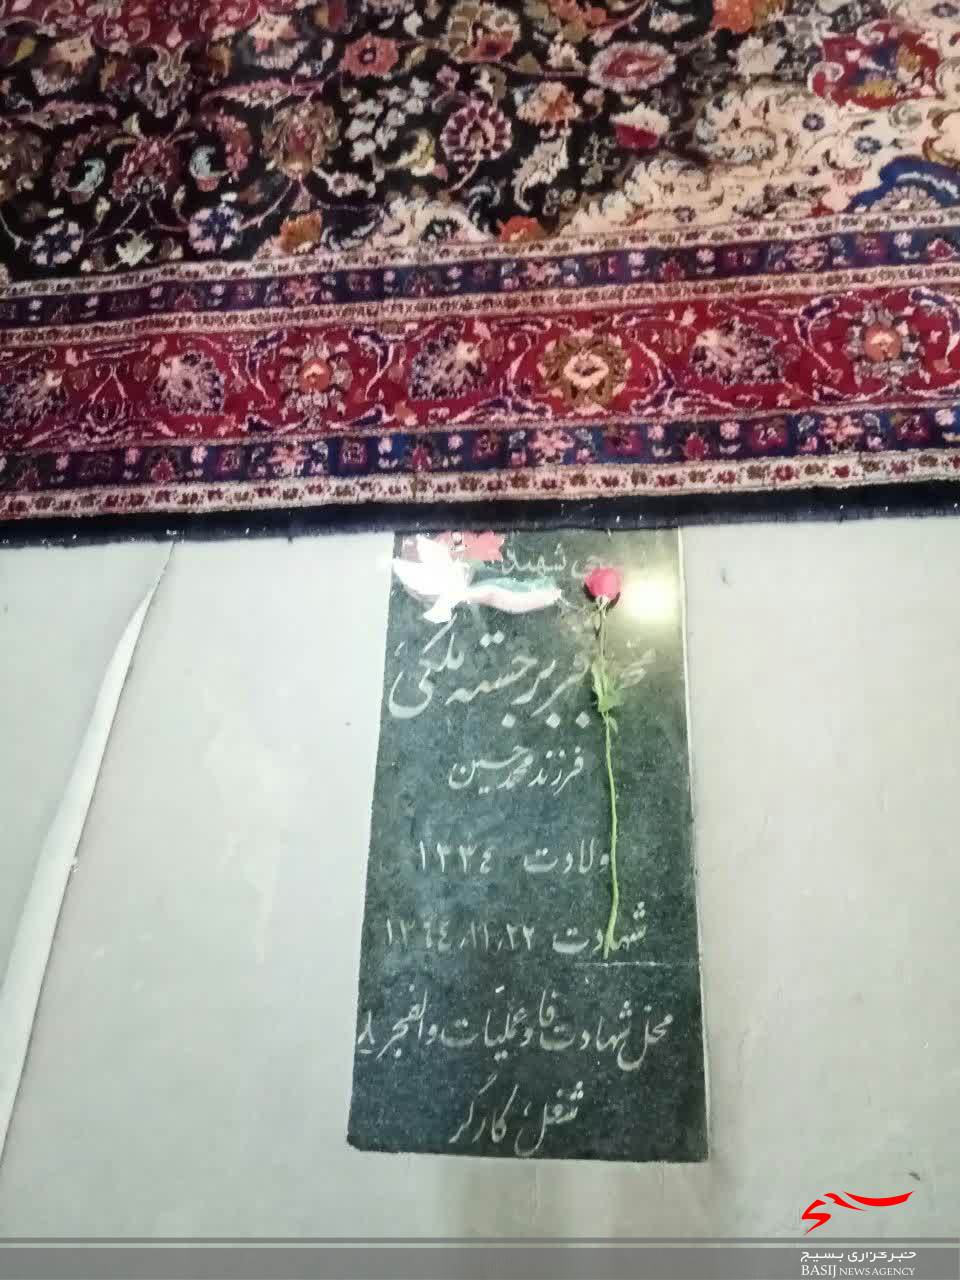 شهید
برجسته ملکی
فرزند محمد حسین
ولادت ۱۳۳٤
شهادت ۱۳٦٤٫۱۱٫۲۲
محل شهادت فاو عملیات والفجر ۸
شغل کارگر
خبرگزاری بسیج
BASIJ NEWS AGENCY